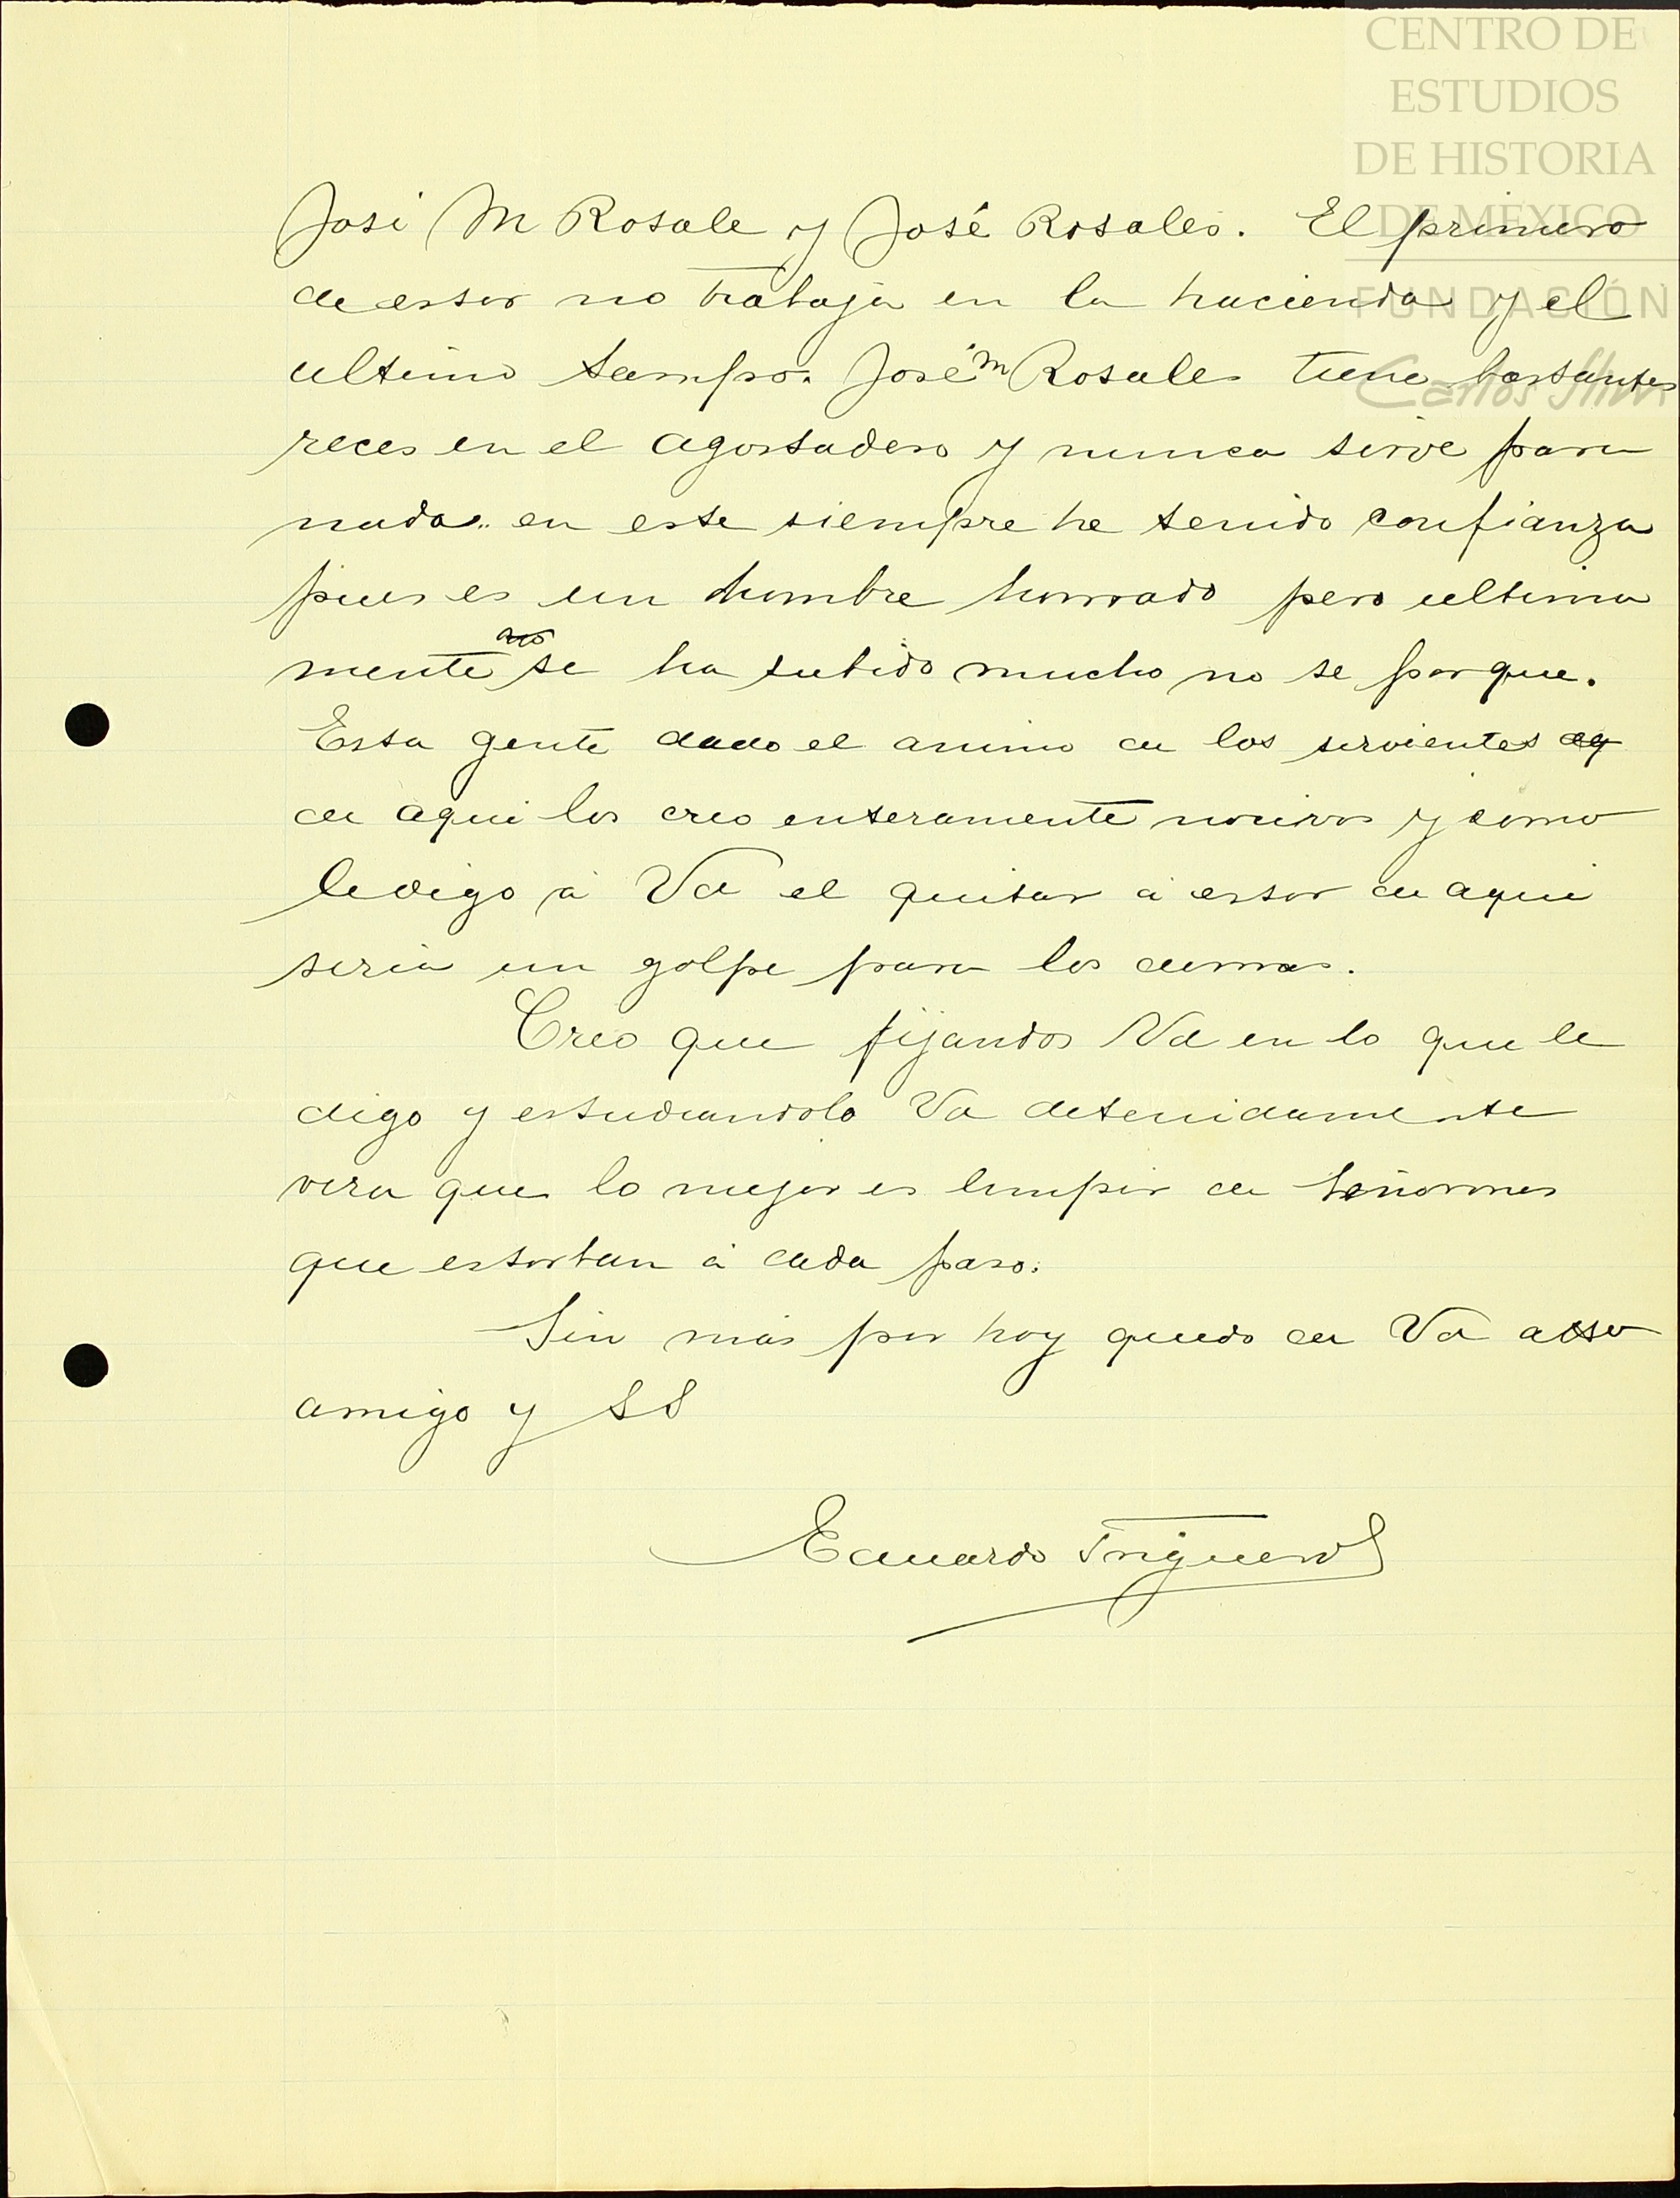 CENTRO DE
ESTUDIOS
DE HISTORIA
DE MÉXICO
FUNDACIÓN
Carlos Slim
José M Rosale y José Rosales. El primero
de estos no trabaja en la hacienda y el
ultimo tampo. José M Rosales tiene bastantes
reces en el agostadero y nunca sirve para
nada.. en este siempre he tenido confianza
pues es un hombre honrado pero ultima
mente se ha subido mucho no se porque.
Esta gente dado el animo de los sirvientes aq
de aqui los creo enteramente nocivos y como
le digo á Vd el quitar á estos de aqui
seria un golpe para los demas.
Creo que fijandos Vd en lo que le
digo y estudiandolo Vd detenidamente
vera que lo mejor es limpiar de
que estorban á cada paso.
Sin más por hoy quedo de Vd atto
amigo y SS
Eduardo Trigueros